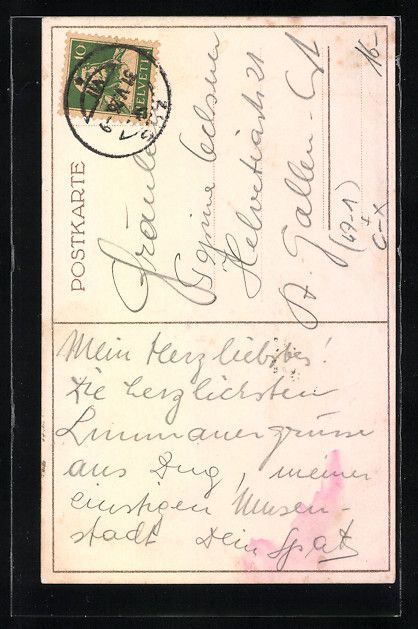 POSTKARTE
10
HELVETIA
Fräulein
Helvetiastr 21
St. Gallen - O
16-
(69-1)
C-X
Mein Herzliebstes!
Die herzlichsten
aus Zug, meiner
einstigen Musen-
stadt Dein Spatz